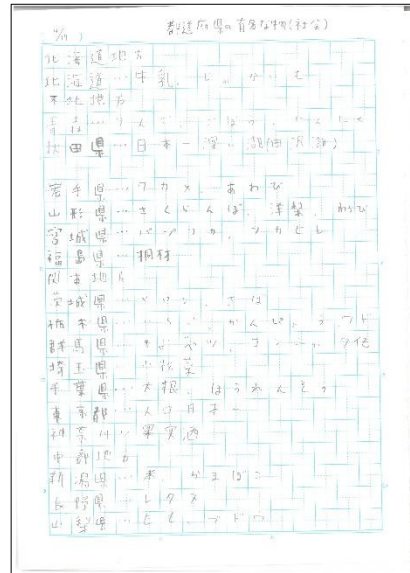 都道府県の有名な物(社会)
北海道地方
北海道…牛乳、じゃがいも
東北地方
青森…りんご、ごぼう、にんにく
秋田県…日本一深い湖(田沢湖)
岩手県…ワカメ、あわび
山形県…さくらんぼ、洋梨、わらび
宮城県…パプリカ、フカヒレ
福島県…桐材
関東地方
茨城県…さば
栃木県…いちご、かんぴょう、ウド
群馬県…キャベツ
埼玉県…小松菜
千葉県…大根、ほうれんそう
東京都…人口
神奈川…果実酒
中部地方
新潟県…米、かまぼこ
長野県…レタス
山梨県…もも、ブドウ